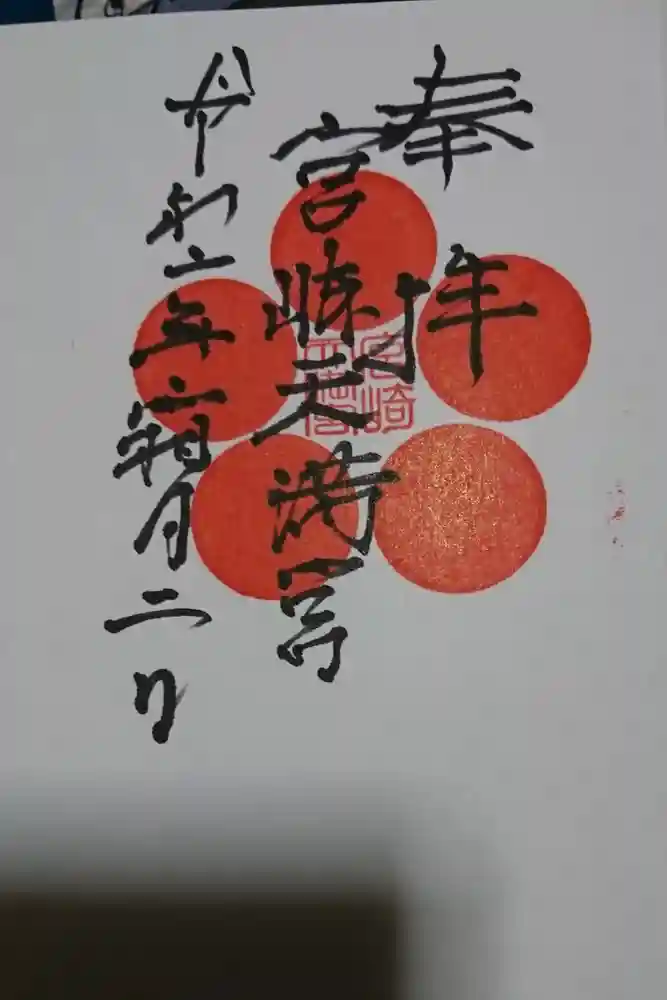 奉拝
宮崎天満宮
令和六年霜月二日
宮崎天満宮